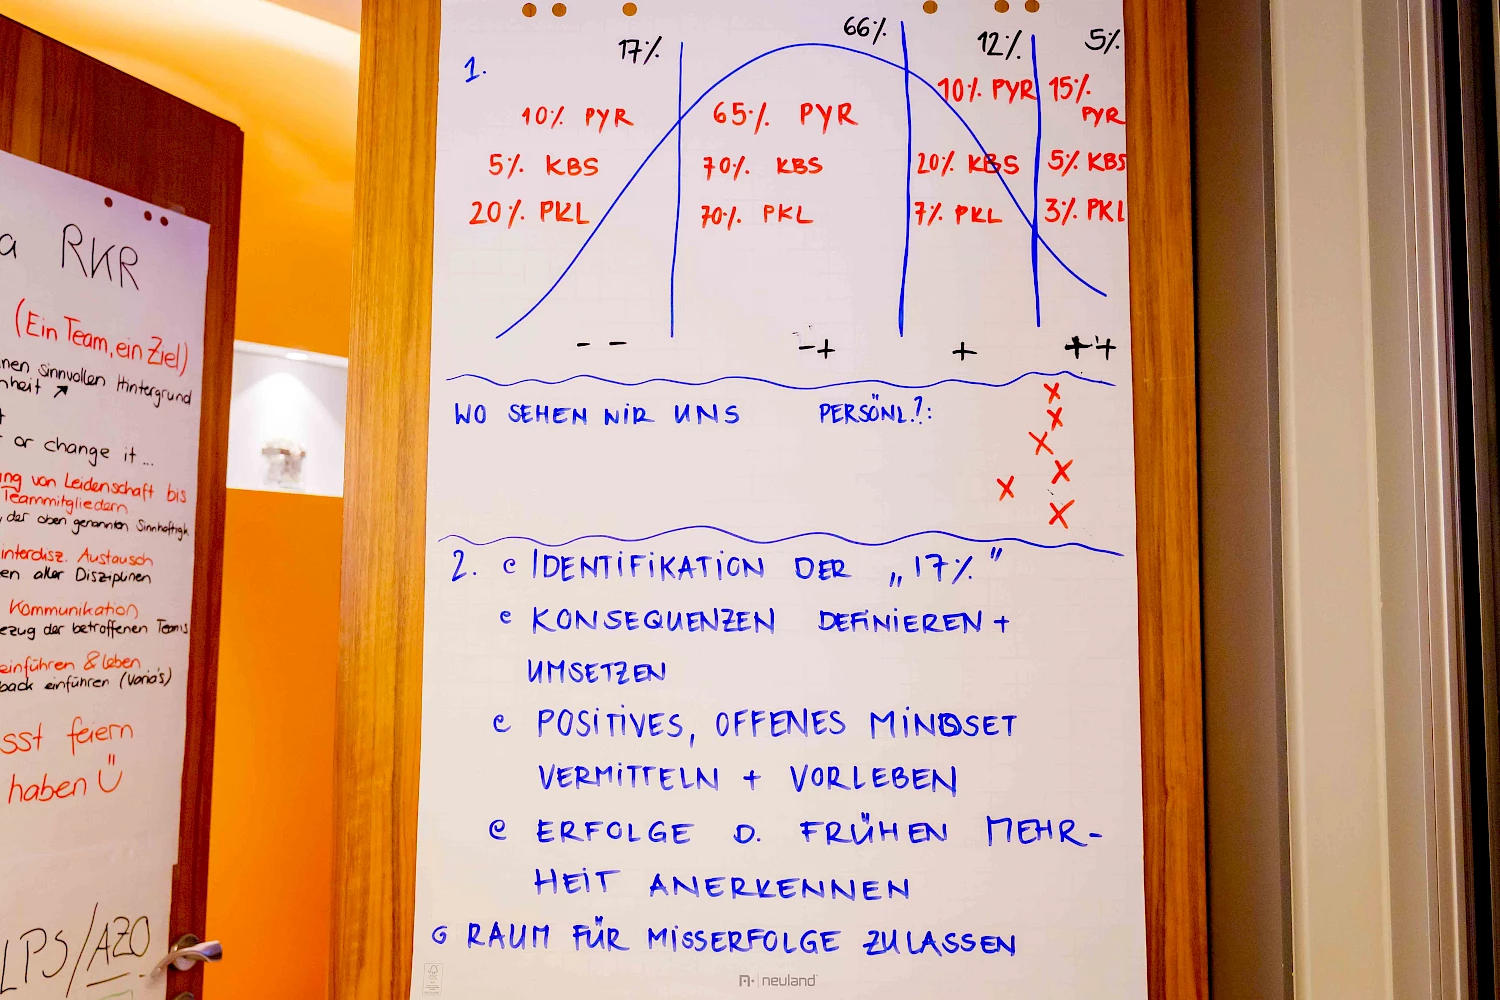 a RKR
(Ein Team, ein Ziel)
nen sinnvollen Hintergrund
nheit ↗
t
r or change it...
ung von Leidenschaft bis
Teammitgliedern
, der oben genannten Sinnhaftigk
interdisz. Austausch
en aller Disziplinen
Kommunikation
ezug der betroffenen Teams
einführen & leben
back einführen (Varia's)
sst feiern
haben Ü
LPS/AZO
1.
17% 66% 12% 5%
10% PYR 65% PYR 10% PYR 15% PYR
5% KBS 70% KBS 20% KBS 5% KBS
20% PKL 70% PKL 7% PKL 3% PKL
- - -+ + ++
WO SEHEN WIR UNS PERSÖNL.?:
x
x
x
x
x
x
2. IDENTIFIKATION DER „17%"
KONSEQUENZEN DEFINIEREN +
UMSETZEN
POSITIVES, OFFENES MINDSET
VERMITTELN + VORLEBEN
ERFOLGE D. FRÜHEN MEHR-
HEIT ANERKENNEN
RAUM FÜR MISSERFOLGE ZULASSEN
neuland